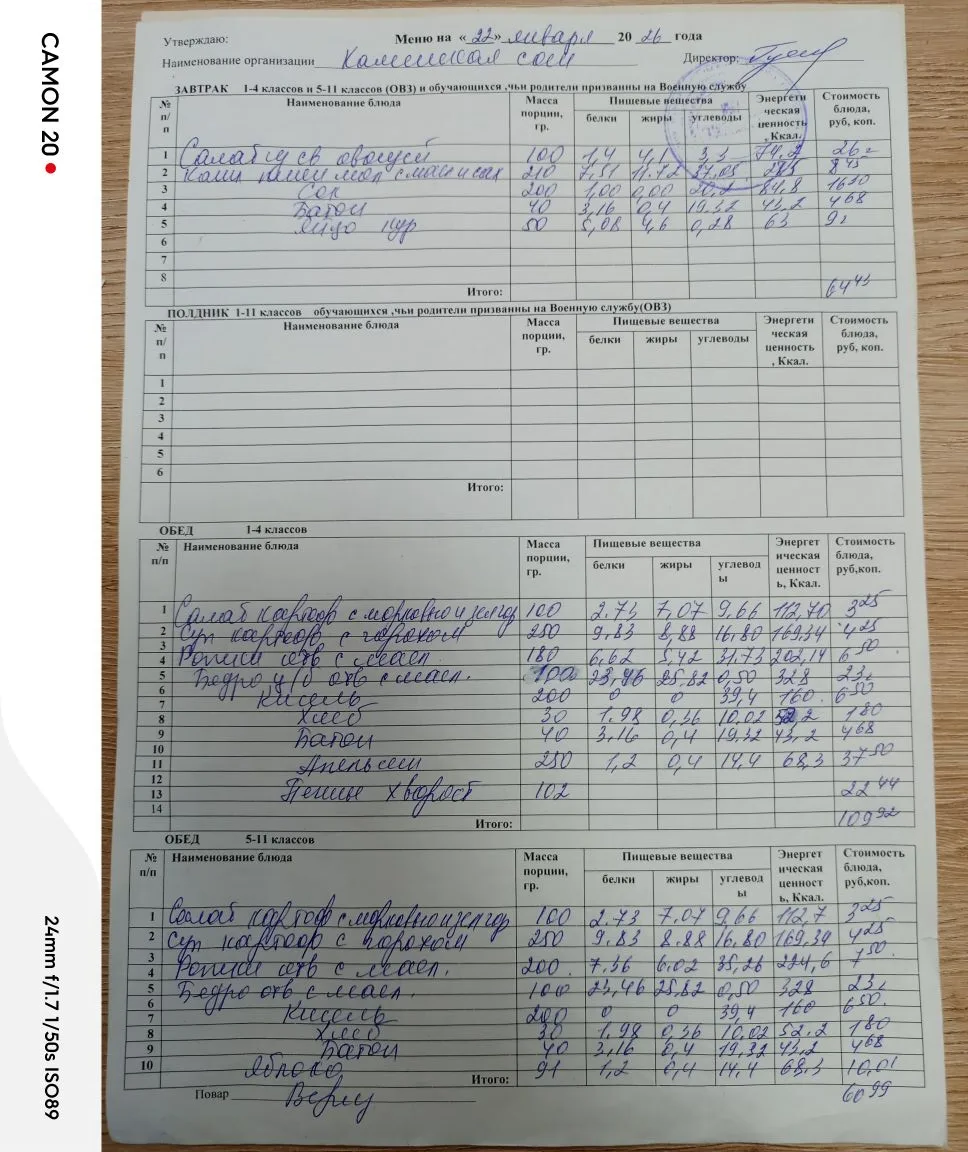 CAMON 20
24mm f/1.7 1/50s ISO89
Утверждаю: Меню на «22» января 2026 года
Наименование организации Каминская сош Директор:
ЗАВТРАК 1-4 классов и 5-11 классов (ОВЗ) и обучающихся ,чьи родители призванны на Военную службу
№ п/п Наименование блюда Масса порции, гр. Пищевые вещества белки жиры углеводы Энергетическая ценность, Ккал. Стоимость блюда, руб, коп.
1 Салат из св овощей 100 1,4 4,1 3,3 74,2
2 210 7,51 11.12 37,05 8 45
3 Сок 200 1,00 0,00 20,2 84,8 16 30
4 Батон 40 3,16 0,4 19.32 43,2 4 68
5 Яйцо кур 50 5,08 4,6 0,28 63
6
7
8
Итого: 64 43
ПОЛДНИК 1-11 классов обучающихся ,чьи родители призванны на Военную службу(ОВЗ)
№ п/п Наименование блюда Масса порции, гр. Пищевые вещества белки жиры углеводы Энергетическая ценность, Ккал. Стоимость блюда, руб, коп.
1
2
3
4
5
6
Итого:
ОБЕД 1-4 классов
№ п/п Наименование блюда Масса порции, гр. Пищевые вещества белки жиры углеводы Энергетическая ценность, Ккал. Стоимость блюда, руб,коп.
1 Салат картоф с морковью и зел гор 100 2.73 7,07 9,66 112,70 3 25
2 Суп картоф с горохом 250 9,83 8,88 16,80 169,34 4 25
3
4 отв с масл. 180 6,62 5,42 31.73 202,14 6 50
5 Бедро ц/б отв с масл. 100 23,46 25,82 0,50 328 23
6
7 Кисель 200 0 0 39,4 160 6 50
8 Хлеб 30 1.98 0,36 10,02 52,2 1 80
9 Батон 40 3.16 0,4 19.32 43,2 4 68
10
11 Апельсин 250 1,2 0,4 14,4 68,3 37 50
12
13 Печенье хворост 102 22 44
14
Итого: 109 92
ОБЕД 5-11 классов
№ п/п Наименование блюда Масса порции, гр. Пищевые вещества белки жиры углеводы Энергетическая ценность, Ккал. Стоимость блюда, руб,коп.
1 Салат картоф с морковью и зел гор 100 2.73 7.07 9,66 112,7 3 25
2 Суп картоф с горохом 250 9.83 8.88 16,80 169,34 4 25
3
4 отв с масл. 200 7,36 6.02 35,26 224,6 7 50
5 Бедро отв с масл. 100 23,46 25,82 0,50 328 23
6
7 Кисель 200 0 0 39,4 160 6 50
8 Хлеб 30 1,98 0,36 10,02 52.2 1 80
9 Батон 40 3,16 0,4 19,32 43,2 4 68
10 Яблоко 91 1,2 0,4 14,4 68,3 10,01
Итого: 60 99
Повар